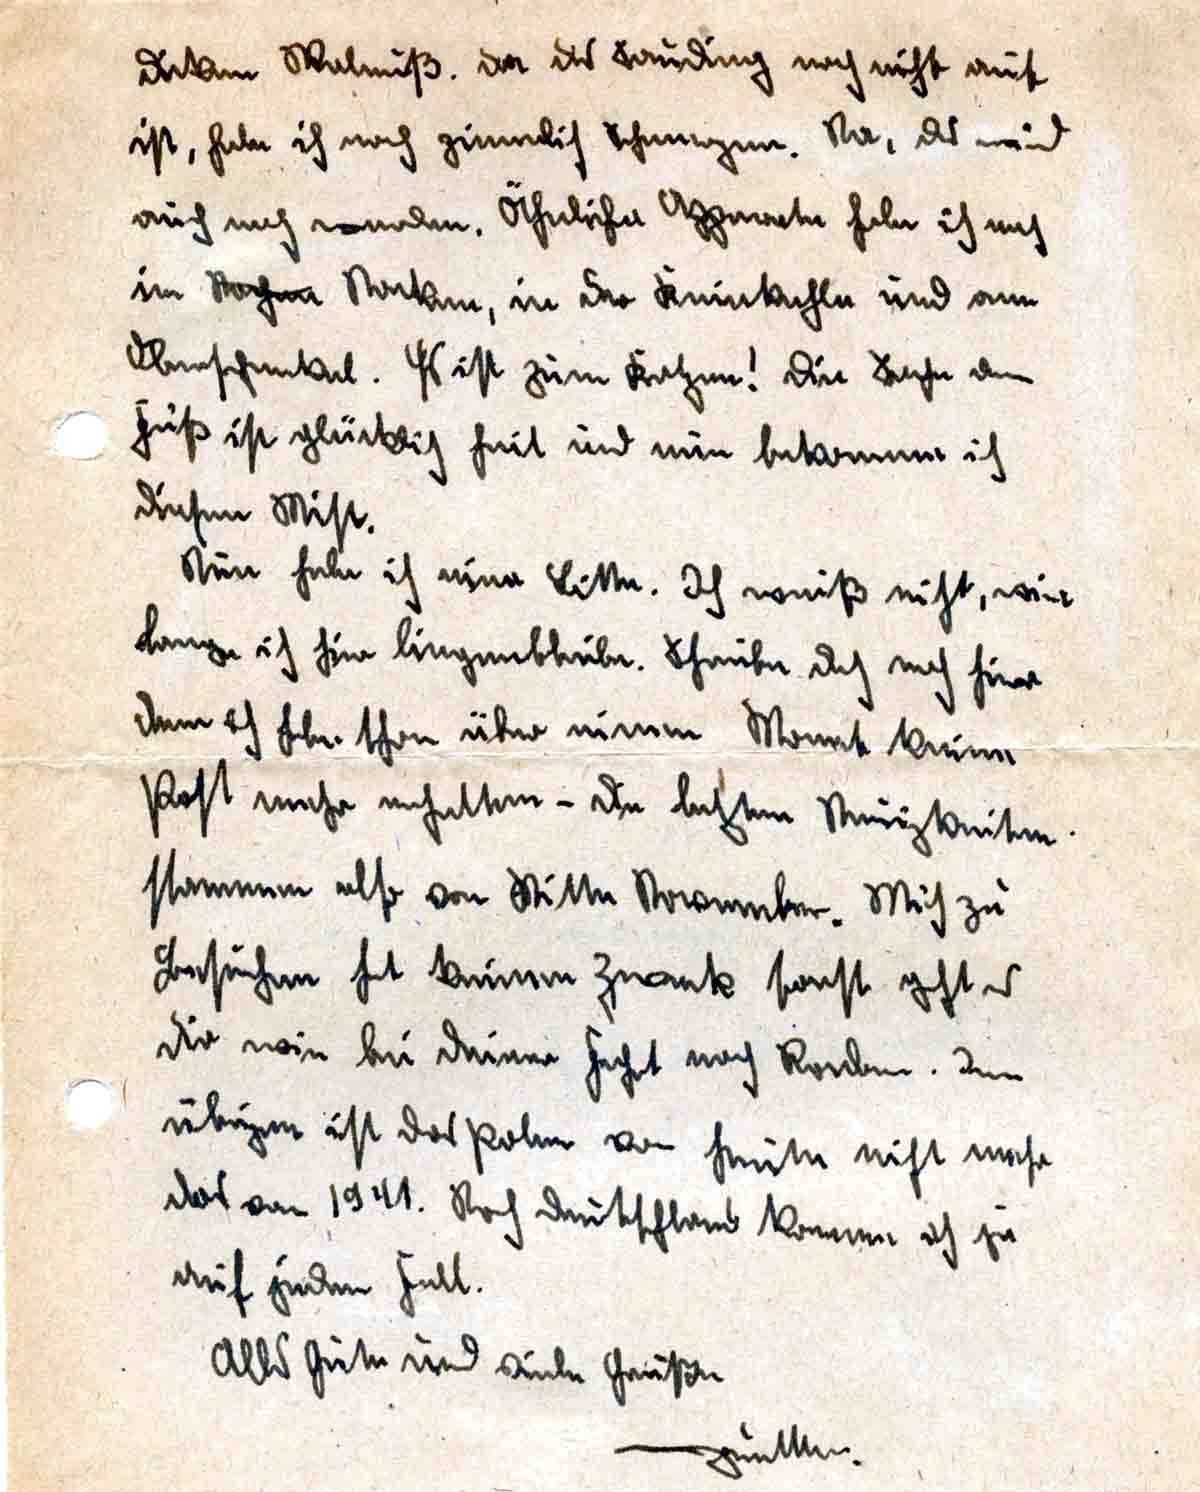 dicken Walnuß. Da das Sauding noch nicht auf
ist, habe ich noch ziemlich Schmerzen. Na, das wird
auch noch werden. Ähnliche Apparate habe ich noch
im Nacken, in der Kniekehle und am
Oberschenkel. Es ist zum Kotzen! Die Sache am
Fuß ist glücklich heil und nun bekomme ich
diesen Mist.
Nun habe ich eine Bitte. Ich weiß nicht, wie
lange ich hier liegenbleibe. Schreibe doch nach hier
denn ich habe schon über einen Monat keine
Post mehr erhalten – die letzten Neuigkeiten
stammen also von Mitte November. Mich zu
besuchen hat keinen Zweck sonst geht es
dir wie bei deiner Fahrt nach Norden. Im
übrigen ist das Polen von heute nicht mehr
das von 1941. Nach Deutschland komme ich ja
auf jeden Fall.
Alles Gute und viele Grüße
Günther.